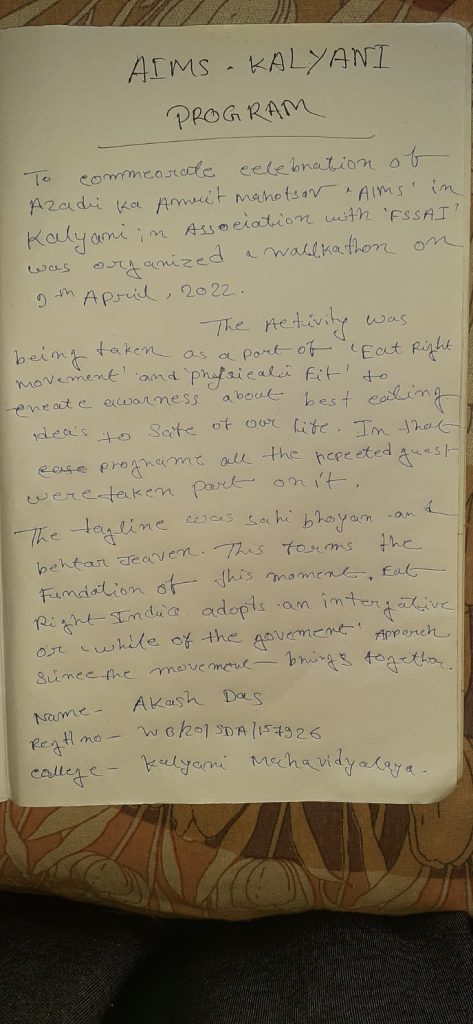 AIMS - KALYANI
PROGRAM
To commeorate celebration of
Azadi Ka Amrit Mahotsav 'AIMS' in
Kalyani in Association with 'FSSAI'
was organized a walkathon on
9th April, 2022.
The Activity was
being taken as a part of 'Eat Right
movement' and 'physicali Fit' to
create awarness about best eating
ideas to Safe of our life. In that
case programe all the repected guest
were taken part on it.
The tagline was sahi bhojan and
behtar Jeevan. This forms the
Fundation of this moment. Eat
Right India adopts an intergative
or 'while of the goverment' Apporch
Siince the movement brings together.
Name - Akash Das
Regtl no - WB/20/SDA/157926
college - Kalyani Mahavidyalaya.